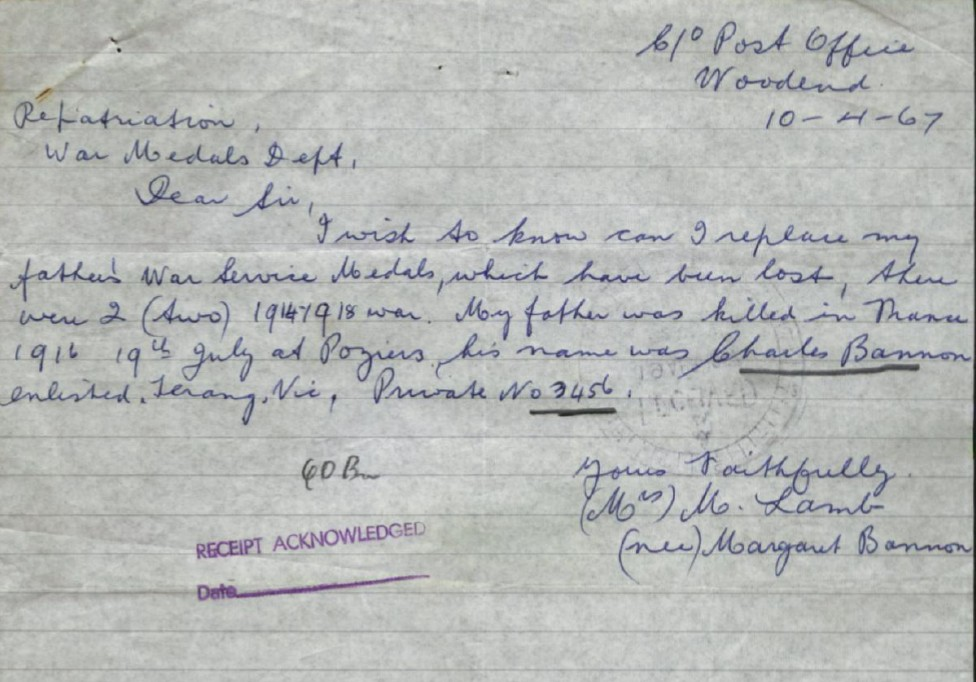 C/o Post Office
Woodend.
10-4-67
Repatriation,
War Medals Dept,
Dear Sir,
I wish to know can I replace my
father's War Service Medals, which have been lost, there
were 2 (two) 1914 1918 war. My father was killed in France
1916 19th July at Poziers, his name was Charles Bannon
enlisted. Terang. Vic, Private No 3456.
60 Bn
Yours Faithfully.
(Mrs) M. Lamb
(nee) Margaret Bannon
RECEIPT ACKNOWLEDGED
Date